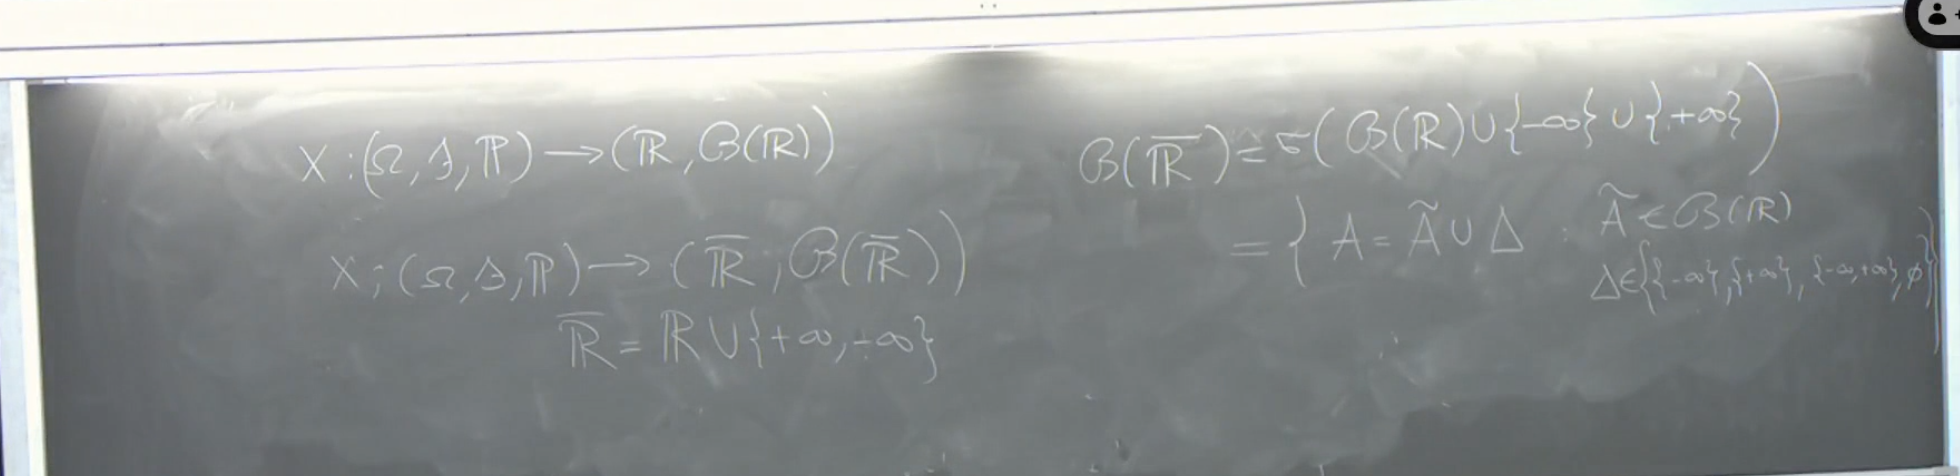 X : (Ω, 𝒜, ℙ) → (ℝ, ℬ(ℝ))
X ; (Ω, 𝒜, ℙ) → (ℝ̅, ℬ(ℝ̅))
ℝ̅ = ℝ ∪ {+∞, -∞}
ℬ(ℝ̅) ≙ σ(ℬ(ℝ) ∪ {-∞} ∪ {+∞})
= { A = Ã ∪ Δ : Ã ∈ ℬ(ℝ)
Δ ∈ {{-∞}, {+∞}, {-∞, +∞}, ∅} }